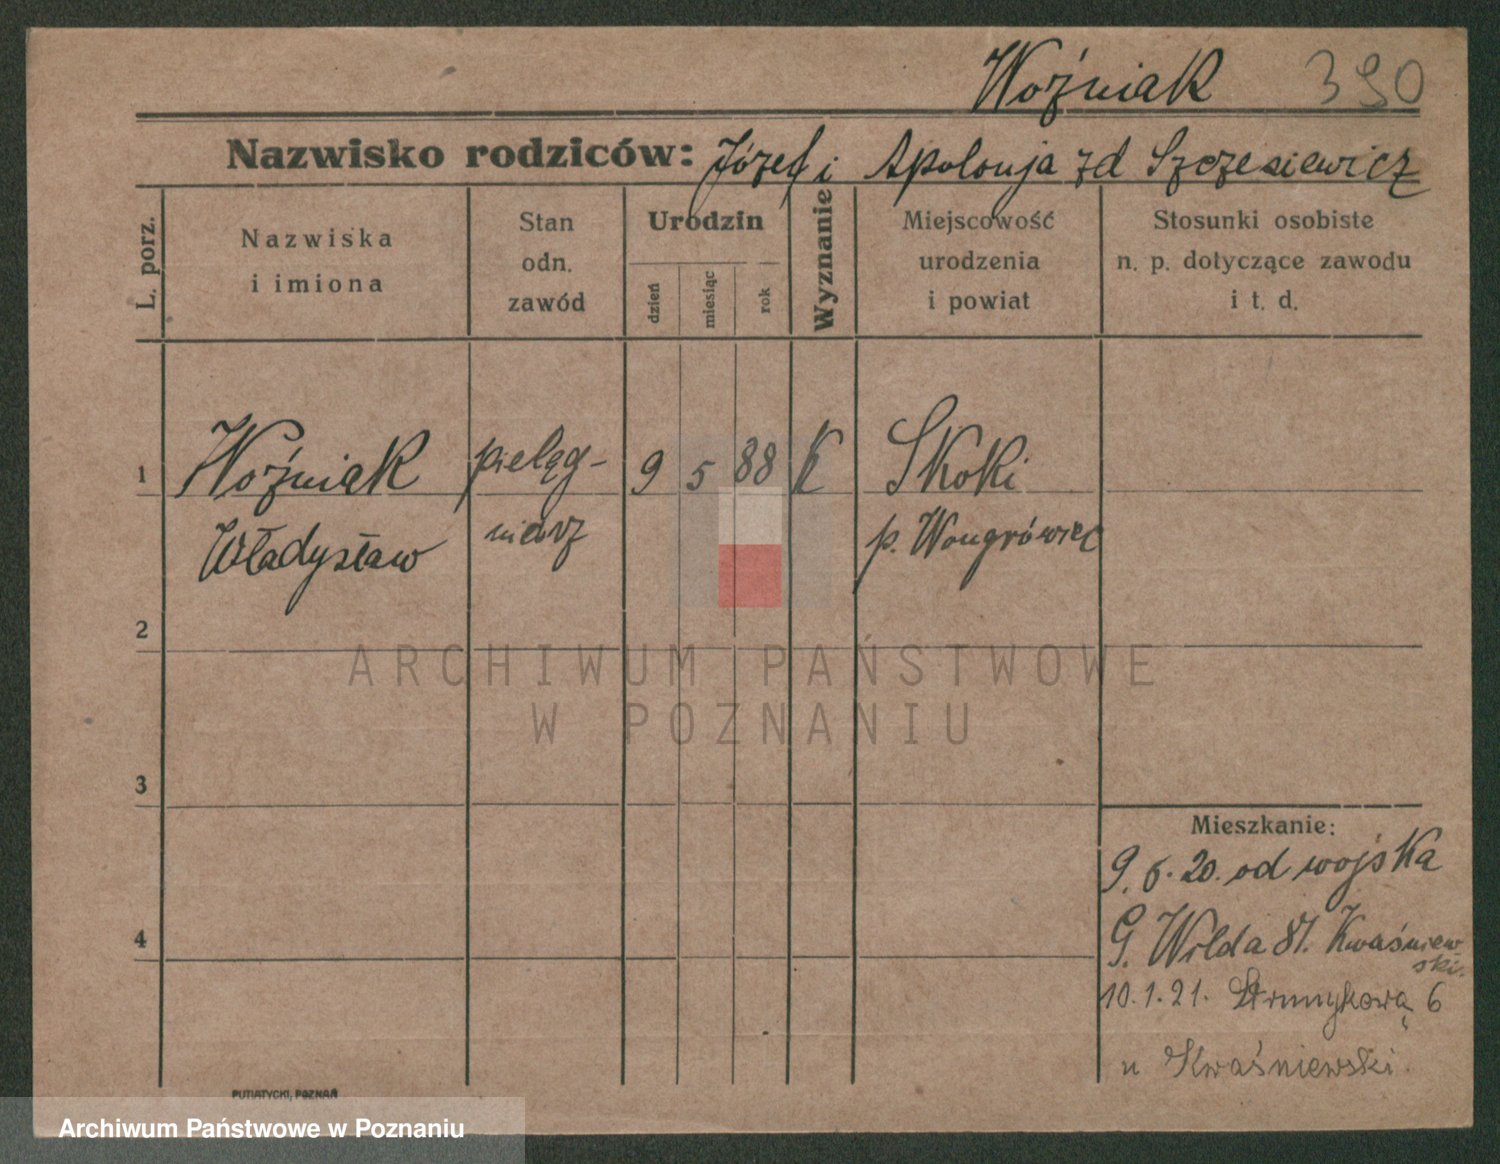 Woźniak 390
Nazwisko rodziców: Józef i Apolonja zd Szczesiewicz
L. porz.
Nazwiska
i imiona
Stan
odn.
zawód
Urodzin
dzień
miesiąc
rok
Wyznanie
Miejscowość
urodzenia
i powiat
Stosunki osobiste
n. p. dotyczące zawodu
i t. d.
1 Woźniak pielęg- 9 5 88 K Skoki
Władysław niarz p. Wongrówiec
2
ARCHIWUM PAŃSTWOWE
W POZNANIU
3
Mieszkanie:
9. 6. 20. od wojska
4
G. Wilda 87. Kwaśniew
ski.
10. 1. 21. Strumykowa 6
u Kwaśniewski.
PUTIATYCKI, POZNAŃ
Archiwum Państwowe w Poznaniu